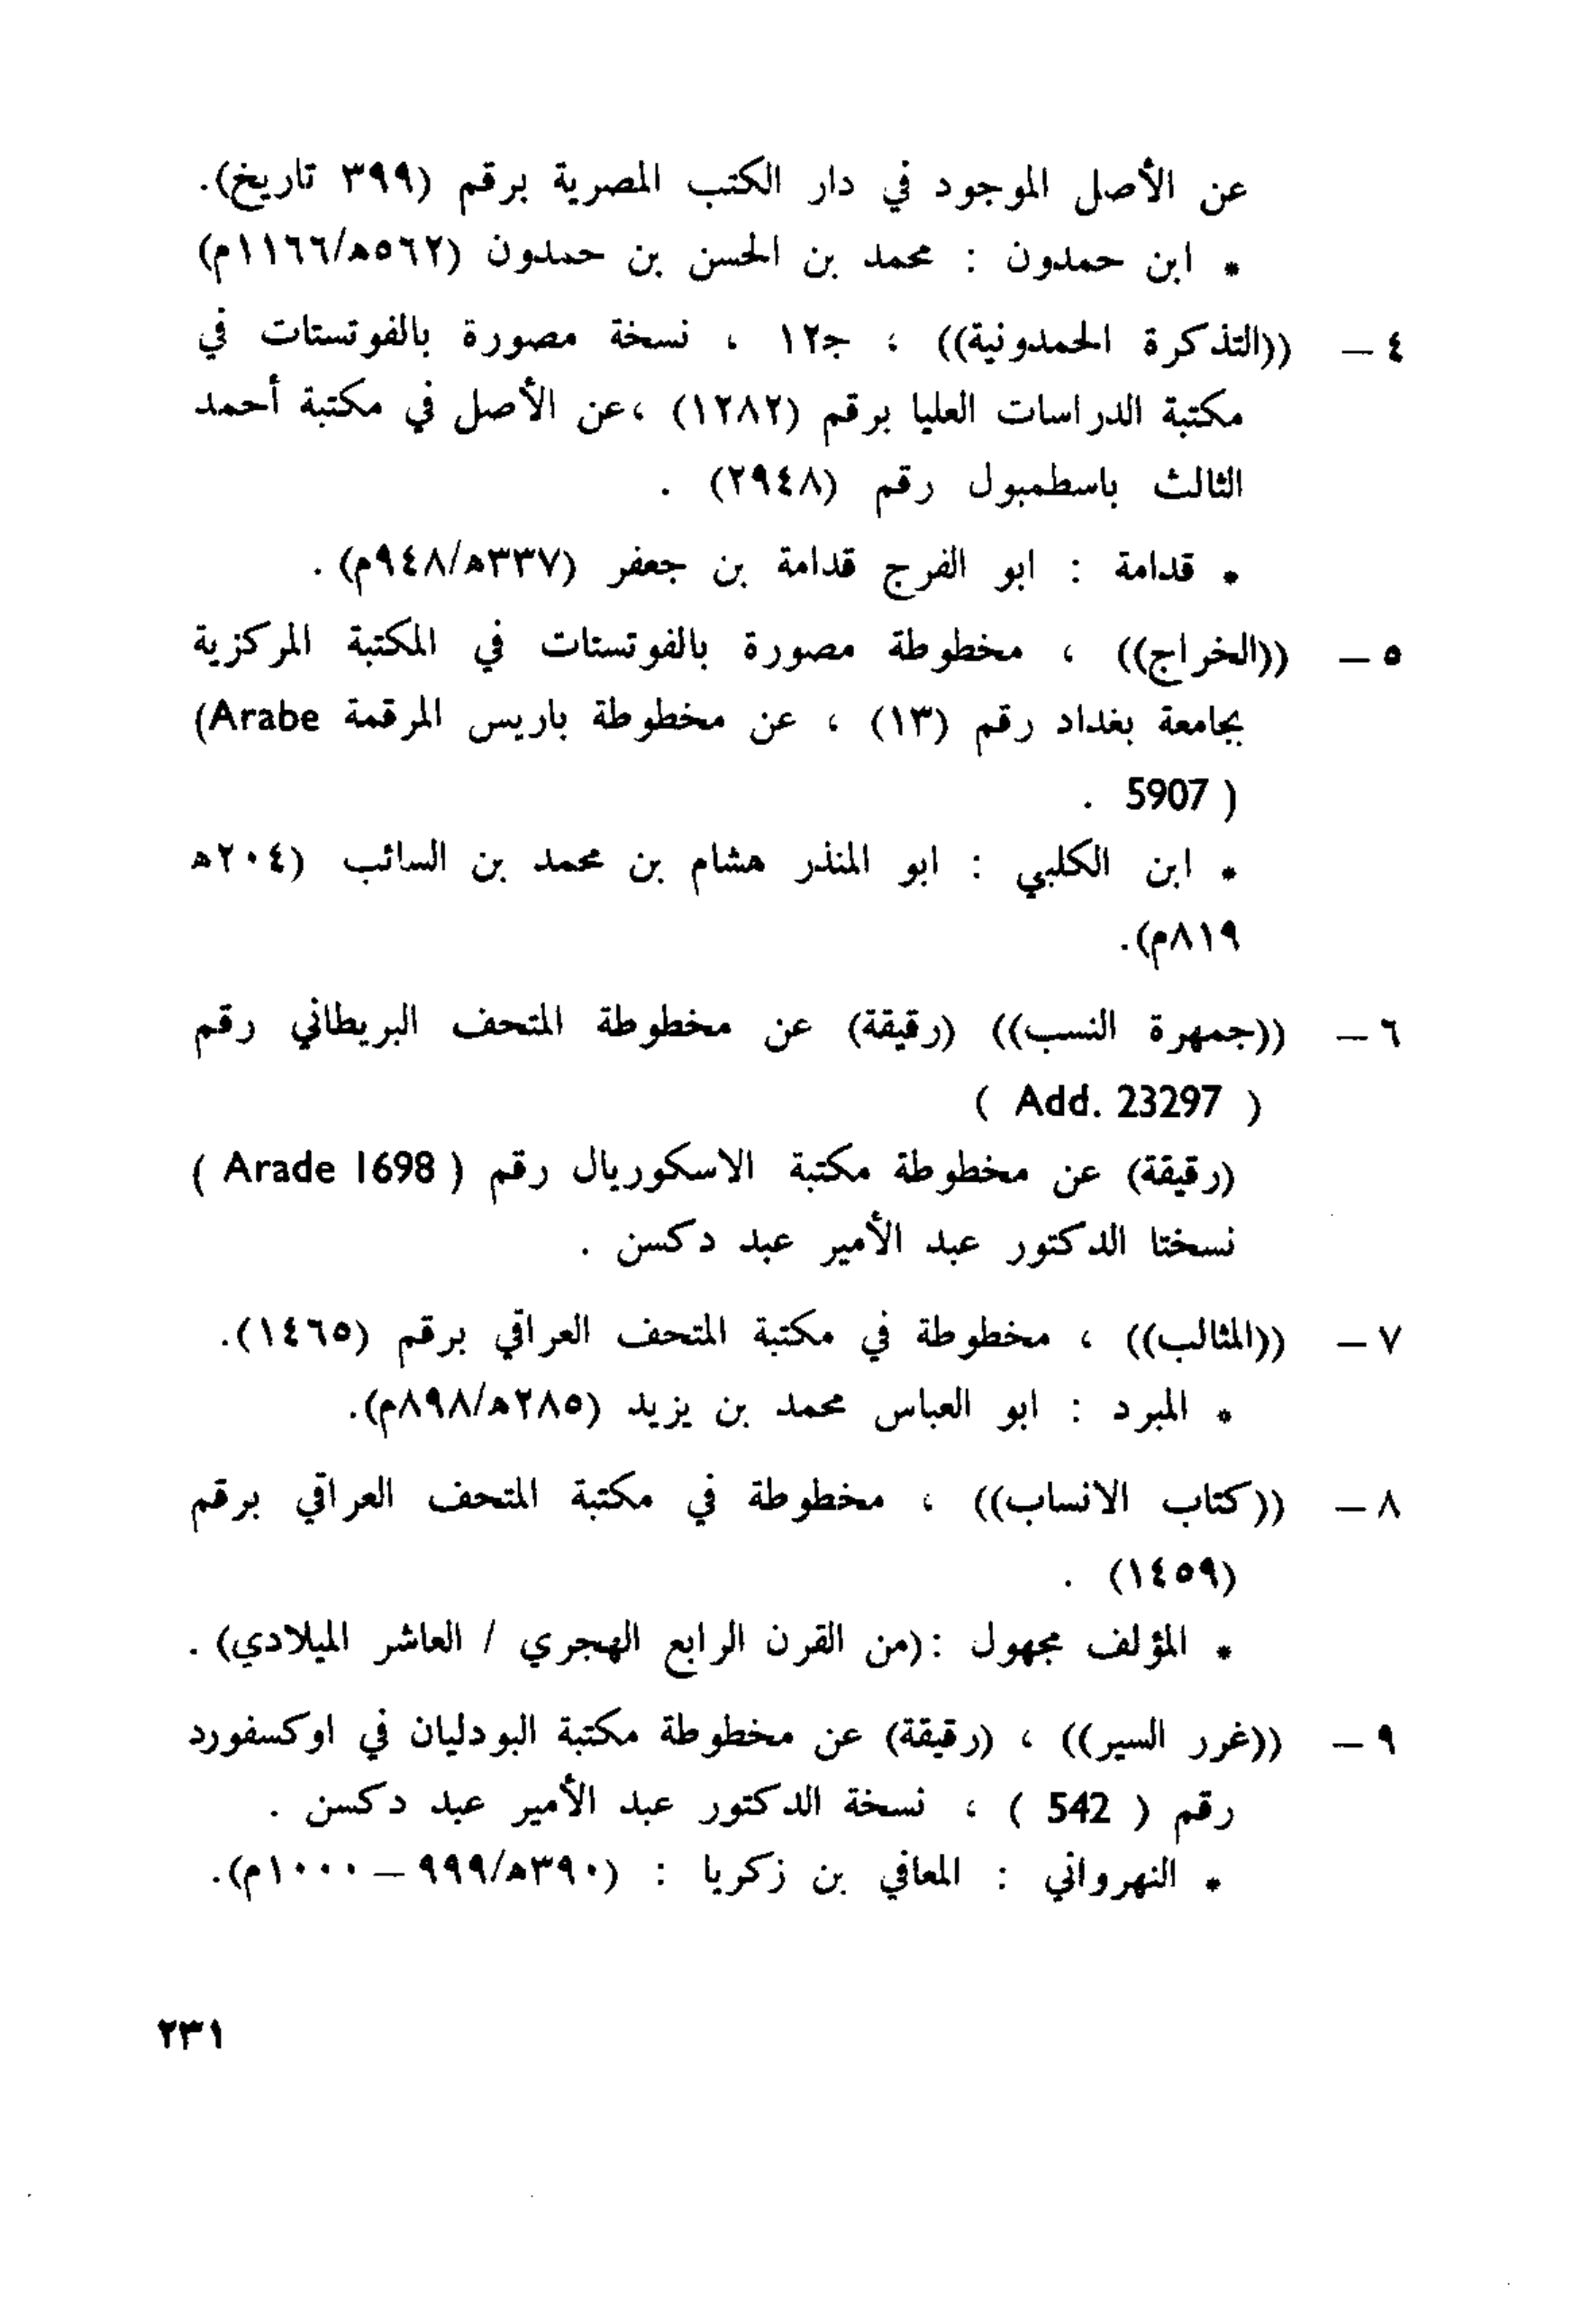 عن الأصل الموجود في دار الكتب المصرية برقم (٣٩٩ تاريخ).
* ابن حمدون : محمد بن الحسن بن حمدون (٥٦٢هـ/١١٦٦م)
٤ – ((التذكرة الحمدونية)) ، جـ١٢ ، نسخة مصورة بالفوتستات في
مكتبة الدراسات العليا برقم (١٢٨٢) ،عن الأصل في مكتبة أحمد
الثالث باسطمبول رقم (٢٩٤٨) .
* قدامة : ابو الفرج قدامة بن جعفر (٣٣٧هـ/٩٤٨م).
٥ – ((الخراج)) ، مخطوطة مصورة بالفوتستات في المكتبة المركزية
بجامعة بغداد رقم (١٣) ، عن مخطوطة باريس المرقمة (Arabe
5907 ) .
* ابن الكلبي : ابو المنذر هشام بن محمد بن السائب (٢٠٤هـ
٨١٩م).
٦ – ((جمهرة النسب)) (رقيقة) عن مخطوطة المتحف البريطاني رقم
( Add. 23297 )
(رقيقة) عن مخطوطة مكتبة الاسكوريال رقم ( Arade 1698 )
نسختا الدكتور عبد الأمير عبد دكسن .
٧ – ((المثالب)) ، مخطوطة في مكتبة المتحف العراقي برقم (١٤٦٥).
* المبرد : ابو العباس محمد بن يزيد (٢٨٥هـ/٨٩٨م).
٨ – ((كتاب الانساب)) ، مخطوطة في مكتبة المتحف العراقي برقم
(١٤٥٩) .
* المؤلف مجهول :(من القرن الرابع الهجري / العاشر الميلادي) .
٩ – ((غرر السير)) ، (رقيقة) عن مخطوطة مكتبة البودليان في اوكسفورد
رقم ( 542 ) ، نسخة الدكتور عبد الأمير عبد دكسن .
* النهرواني : المعافي بن زكريا : (٣٩٠هـ/٩٩٩ – ١٠٠٠م).
٢٣١